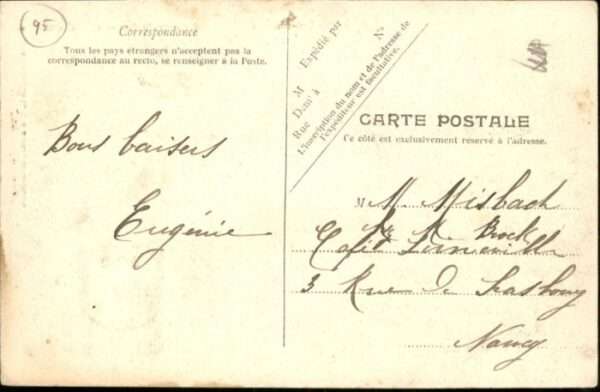 95
Correspondance
Tous les pays étrangers n'acceptent pas la
correspondance au recto, se renseigner à la Poste.
Bons baisers
Eugénie
Expédié par
M
Dem t à
Rue Nº
L'inscription du nom et de l'adresse de
l'expéditeur est facultative.
CARTE POSTALE
Ce côté est exclusivement réservé à l'adresse.
M M. Misbach
Brock
Café Lunéville
3 Rue de Strasbourg
Nancy